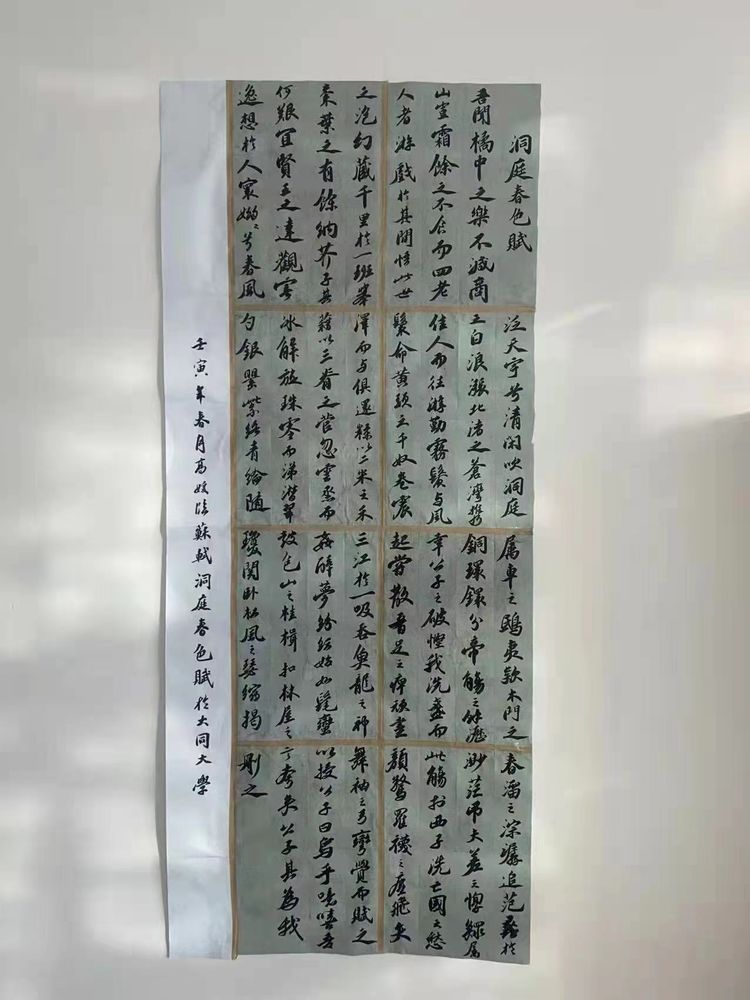 洞庭春色賦
吾聞橘中之樂不減商
山豈霜餘之不食而四老
人者游戲於其間悟此世
之泡幻藏千里於一班舉
棗葉之有餘納芥子其
何艱宜賢王之達觀寄
逸想於人寰嫋〻兮春風
泛天宇兮清閑吹洞庭
之白浪漲北渚之蒼灣攜
佳人而往游勤霧鬢与風
鬟命黃頭之千奴卷震
澤而与俱還糅以二米之禾
藉以三脊之菅忽雲蒸而
冰解旋珠零而涕潸翠
勺銀罌紫絡青綸隨
属車之鴟夷款木門之
銅環鐶分帝觴之餘瀝
幸公子之破慳我洗盞而
起嘗散足之痺頑盡
三江於一吸吞魚龍之神
姦醉夢紛紜始如髦蠻
鼓包山之桂楫扣林屋之
瓊關卧松風之瑟縮揭
春溜之淙潺追范蠡於
渺茫弔夫差之惸鰥属
此觴於西子洗亡國之愁
顏驚羅襪之塵飛失
舞袖之弓彎覺而賦之
以授公子曰烏乎噫嘻吾
言夸矣公子其為我
刪之
壬寅年春月高臨蘇軾洞庭春色賦於大同大學